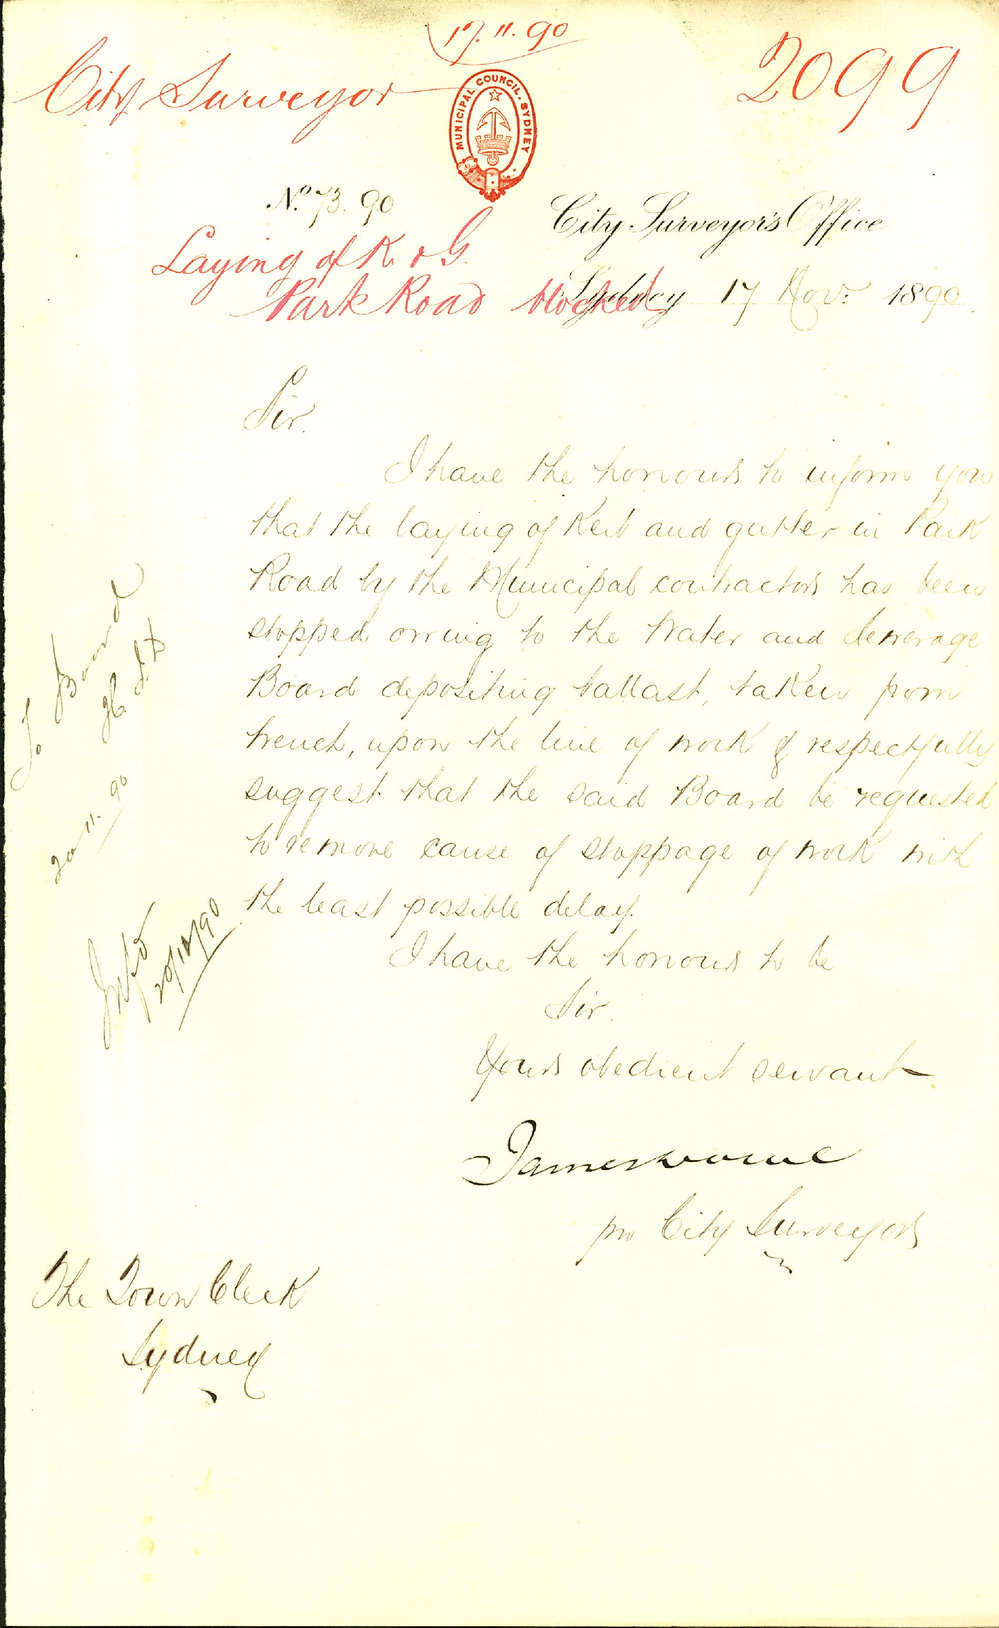 17.11.90
City Surveyor
2099
MUNICIPAL COUNCIL. SYDNEY
No. 73.90
City Surveyor's Office
Laying of K. & G.
Park Road blocked
Sydney 17 Nov: 1890
Sir.
I have the honour to inform you
that the laying of Kerb and gutter in Park
Road by the Municipal contractors has been
stopped owing to the Water and Sewerage
Board depositing ballast, taken from
trench, upon the line of work & respectfully
suggest that the said Board be requested
to remove cause of stoppage of work with
the least possible delay.
I have the honour to be
Sir.
Your obedient servant
James
pro City Surveyor
The Town Clerk
Sydney
To Board
20.11.90
Inf'd